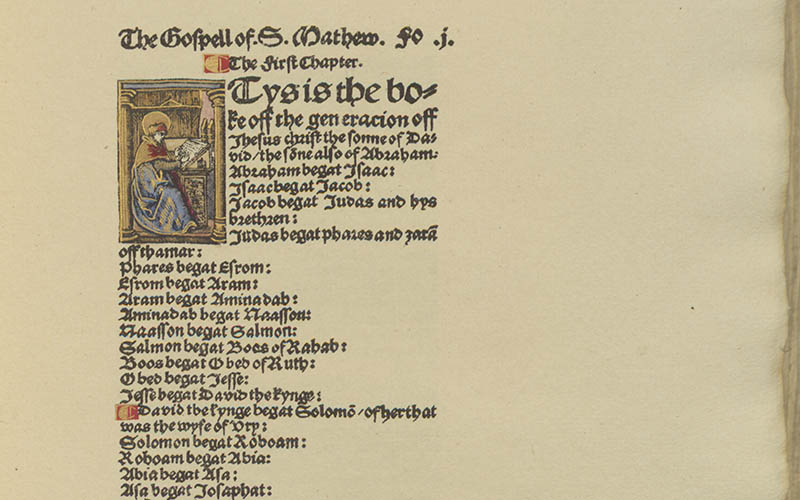 The Gospell of .S. Mathew. Fo .j.
The First Chapter.
Tys is the bo⸗
ke off the gen eracion off
Jhesus christ the sonne of Da⸗
vid / the sõne also of Abraham.
Abraham begat Isaac:
Isaac begat Jacob:
Jacob begat Judas and hys
brethren:
Judas begat phares and zarã
off thamar:
Phares begat Esrom:
Esrom begat Aram:
Aram begat Aminadab:
Aminadab begat Naasson:
Naasson begat Salmon:
Salmon begat Boos of Rahab:
Boos begat Obed of Ruth:
Obed begat Jesse:
Jesse begat David the kynge:
David the kynge begat Solomõ / of her that
was the wyfe of Vry:
Solomon begat Roboam:
Roboam begat Abia:
Abia begat Asa:
Asa begat Josaphat: